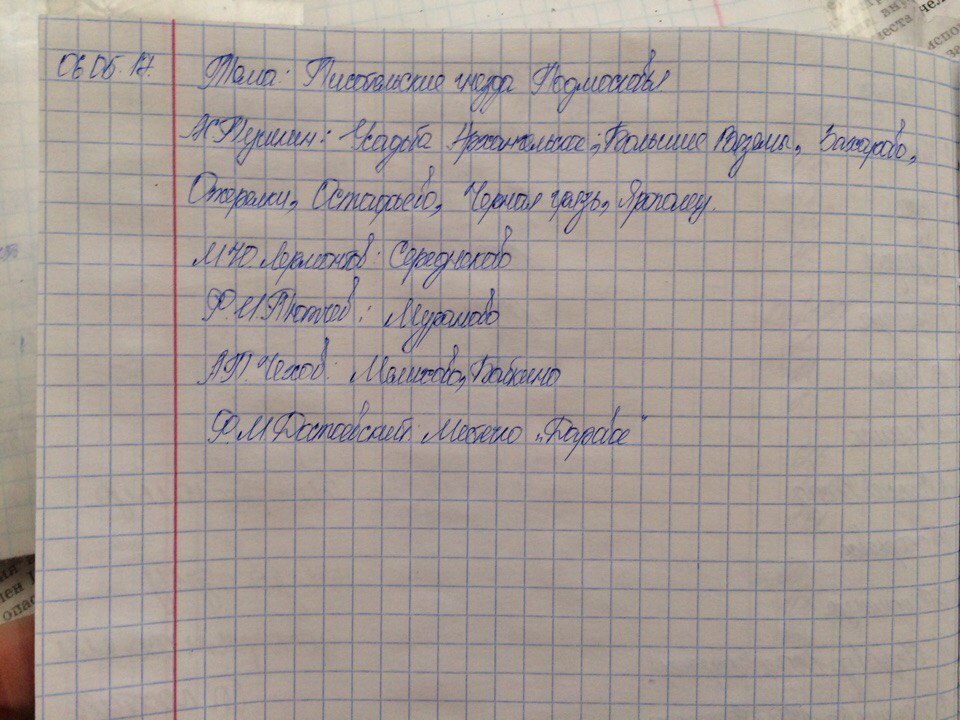 06.06.17. Тема: Писательские гнезда Подмосковья
А.С.Пушкин: Усадьба Архангельское, Большие Вязёмы, Захарово,
Ожерелки, Остафьево, Черная грязь, Ярополец.
М.Ю.Лермонтов: Середнеково
Ф.И.Тютчев: Мураново
А.П.Чехов: Мелихово, Бабкино
Ф.М.Достоевский: Местечко „